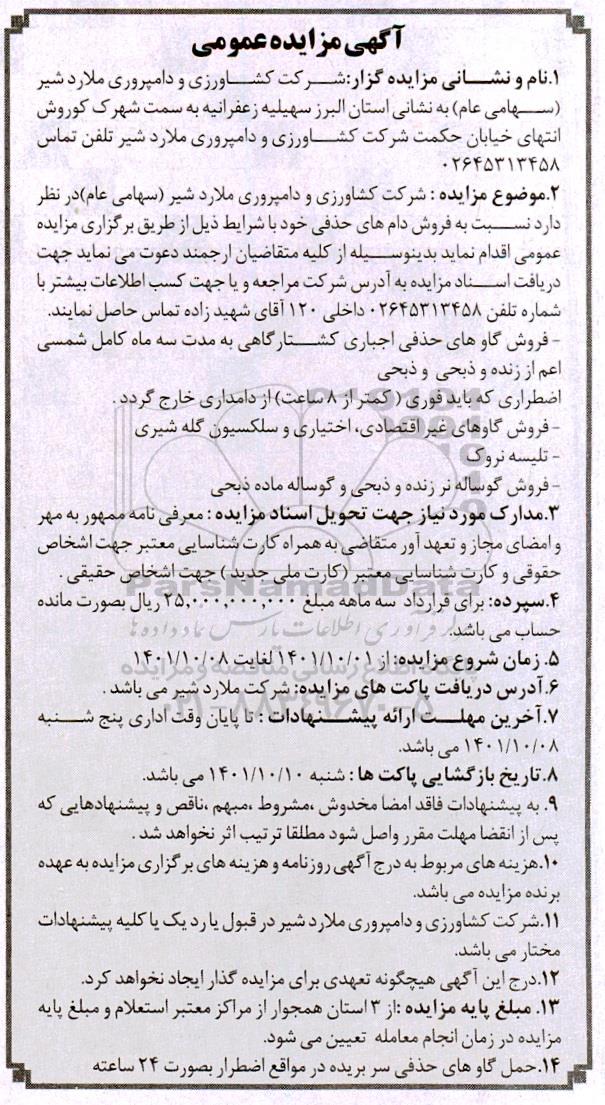 آگهی مزایده عمومی
۱.نام و نشــــانی مزایده گزار:شــرکت کشــاورزی و دامپروری ملارد شیر
(ســهامی عام) به نشانی استان البرز سهیلیه زعفرانیه به سمت شهرک کوروش
انتهای خیابان حکمت شرکت کشــاورزی و دامپروری ملارد شیر تلفن تماس
۰۲۶۴۵۳۱۳۴۵۸
۲.موضوع مزایده : شرکت کشاورزی و دامپروری ملارد شیر (سهامی عام)در نظر
دارد نســبت به فروش دام های حذفی خود با شرایط ذیل از طریق برگزاری مزایده
عمومی اقدام نماید بدینوســیله از کلیه متقاضیان ارجمند دعوت می نماید جهت
دریافت اســناد مزایده به آدرس شرکت مراجعه و یا جهت کسب اطلاعات بیشتر با
شماره تلفن ۰۲۶۴۵۳۱۳۴۵۸ داخلی ۱۲۰ آقای شهید زاده تماس حاصل نمایند.
- فروش گاو های حذفی اجباری کشــتارگاهی به مدت سه ماه کامل شمسی
اعم از زنده و ذبحی و ذبحی
اضطراری که باید فوری ( کمتر از ۸ ساعت) از دامداری خارج گردد .
- فروش گاوهای غیر اقتصادی، اختیاری و سلکسیون گله شیری
- تلیسه نروک
- فروش گوساله نر زنده و ذبحی و گوساله ماده ذبحی
۳.مدارک مورد نیاز جهت تحویل اسناد مزایده : معرفی نامه ممهور به مهر
و امضای مجاز و تعهد آور متقاضی به همراه کارت شناسایی معتبر جهت اشخاص
حقوقی و کارت شناسایی معتبر (کارت ملی جدید ) جهت اشخاص حقیقی .
ParsNamadData
۴.سپرده: برای قرارداد سه ماهه مبلغ ۲۵,۰۰۰,۰۰۰,۰۰۰ ریال بصورت مانده
حساب می باشد.
۵. زمان شروع مزایده: از ۱۴۰۱/۱۰/۰۱ لغایت ۱۴۰۱/۱۰/۰۸
پایگاه اطلاع رسانی مناقصه و مزایده
۶.آدرس دریافت پاکت های مزایده: شرکت ملارد شیر می باشد .
۰۲۱-۸۸۳۴۹۶۷۰-۵
۷.آخرین مهلــت ارائه پیشــنهادات : تا پایان وقت اداری پنج شــنبه
۱۴۰۱/۱۰/۰۸ می باشد.
۸.تاریخ بازگشایی پاکت ها : شنبه ۱۴۰۱/۱۰/۱۰ می باشد.
۹. به پیشنهادات فاقد امضا مخدوش ،مشروط ،مبهم ،ناقص و پیشنهادهایی که
پس از انقضا مهلت مقرر واصل شود مطلقا ترتیب اثر نخواهد شد .
۱۰.هزینه های مربوط به درج آگهی روزنامه و هزینه های برگزاری مزایده به عهده
برنده مزایده می باشد.
۱۱.شرکت کشاورزی و دامپروری ملارد شیر در قبول یا رد یک یا کلیه پیشنهادات
مختار می باشد.
۱۲.درج این آگهی هیچگونه تعهدی برای مزایده گذار ایجاد نخواهد کرد.
۱۳. مبلغ پایه مزایده :از ۳ استان همجوار از مراکز معتبر استعلام و مبلغ پایه
مزایده در زمان انجام معامله تعیین می شود.
۱۴.حمل گاو های حذفی سر بریده در مواقع اضطرار بصورت ۲۴ ساعته